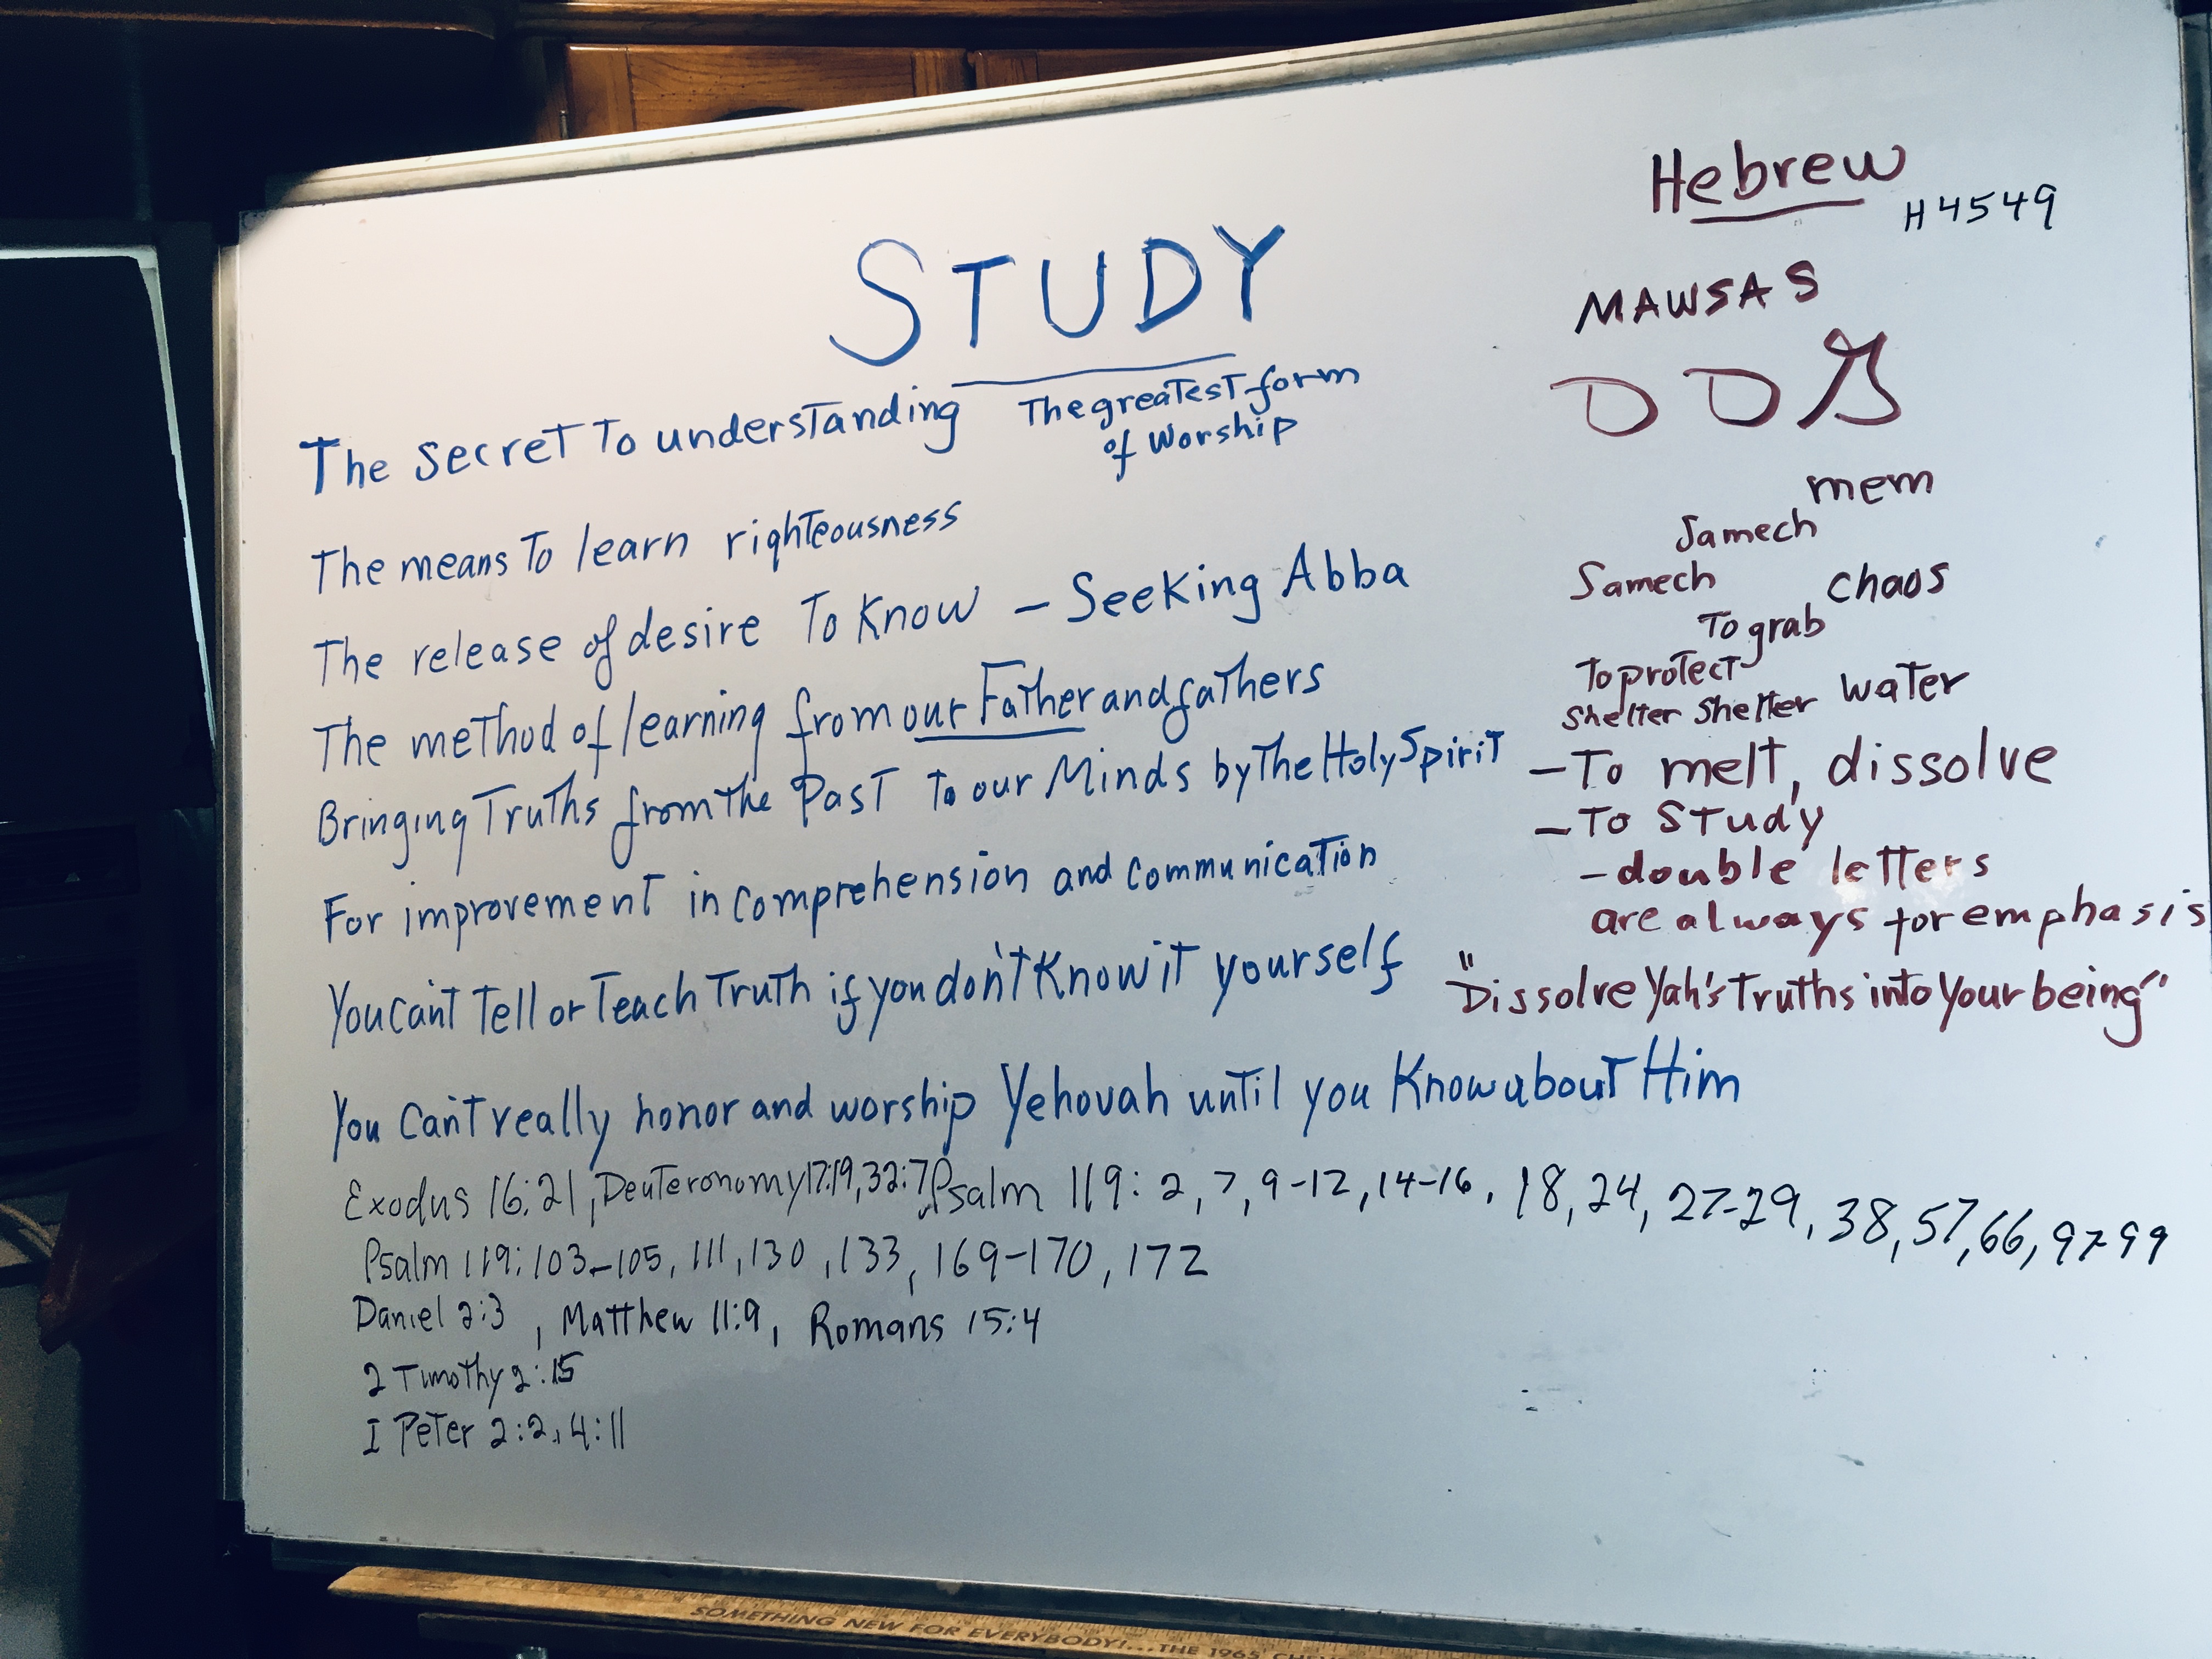 STUDY
The secret To understanding
The greatest form
of Worship
The means To learn righteousness
The release of desire To Know - Seeking Abba
The method of learning from our Father and fathers
Bringing Truths from the Past To our Minds by The Holy Spirit
For improvement in comprehension and communication
You can't Tell or Teach Truth if you don't Know it yourself
You Can't really honor and worship Yehovah until you Know about Him
Exodus 16:21, Deuteronomy 17:19, 32:7, Psalm 119: 2, 7, 9-12, 14-16, 18, 24, 27-29, 38, 57, 66, 97-99
Psalm 119: 103-105, 111, 130, 133, 169-170, 172
Daniel 2:3, Matthew 11:9, Romans 15:4
2 Timothy 2:15
I Peter 2:2, 4:11
Hebrew
H4549
MAWSAS
ססמ
mem
Samech
Samech
chaos
To grab
To protect
Shelter Shelter water
- To melt, dissolve
- To Study
- double letters
are always for emphasis
"Dissolve Yah's Truths into your being"
SOMETHING NEW FOR EVERYBODY!...THE 1965